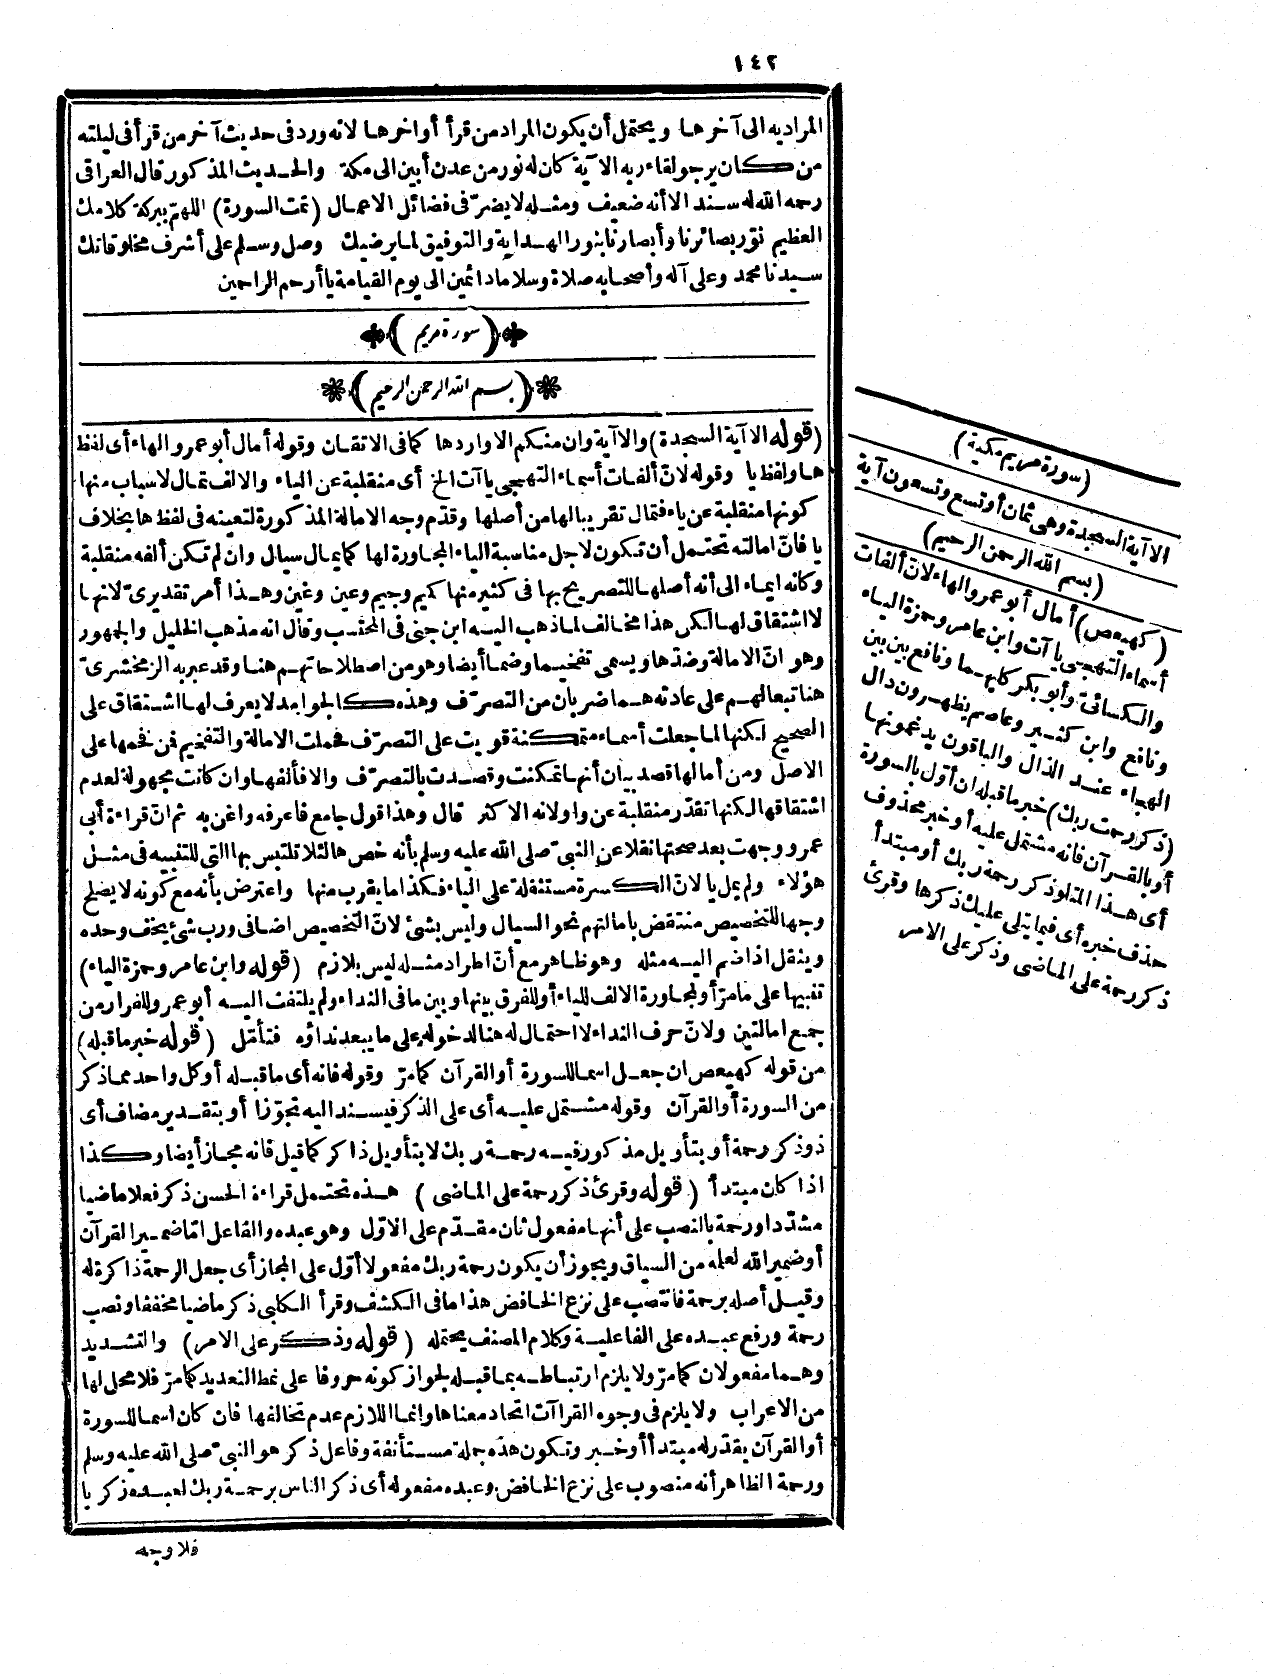 ١٤٢
المراد به الى آخرها ويحتمل أن يكون المراد من قرأ أواخرها لانه ورد فى حديث آخر من قرأ فى ليلته
من كان يرجو لقاء ربه الآية كان له نور من عدن أبين الى مكة والحديث المذكور قال العراقى
رحمه الله له سند الا أنه ضعيف ومثله لا يضر فى فضائل الاعمال (تمت السورة) اللهم ببركة كلامك
العظيم نوّر بصائرنا وأبصارنا بنور الهداية والتوفيق لما يرضيك وصل وسلم على أشرف مخلوقاتك
سيدنا محمد وعلى آله وأصحابه صلاة وسلاما دائمين الى يوم القيامة يا أرحم الراحمين
(سورة مريم)
(بسم الله الرحمن الرحيم)
(قوله الا آية السجدة) والا آية وان منكم الا واردها كما فى الاتقان وقوله أمال أبو عمرو الهاء أى لفظ
ها ولفظ يا وقوله لانّ ألفات أسماء التهجى يا آت الخ أى منقلبة عن الياء والالف تمال لاسباب منها
كونها منقلبة عن ياء فتمال تقريبا لها من أصلها وقدّم وجه الامالة المذكورة لتعينه فى لفظ ها بخلاف
يا فانّ امالته تحتمل أن تكون لاجل مناسبة الياء المجاورة لها كما يمال سيال وان لم تكن ألفه منقلبة
وكانه ايماء الى أنه أصلها للتصريح بها فى كثير منها كميم وجيم وعين وغين وهذا أمر تقديرى لانها
لا اشتقاق لها لكن هذا مخالف لما ذهب اليه ابن جنى فى المحتسب وقال انه مذهب الخليل والجمهور
وهو انّ الامالة وضدّها ويسمى تفخيما وضما أيضا وهو من اصطلاحاتهم هنا وقد عبر به الزمخشرىّ
هنا تبعا لهم على عادته هما ضربان من التصرّف وهذه كالجوامد لا يعرف لها اشتقاق على
الصحيح لكنها لما جعلت أسماء متمكنة قويت على التصرّف فحملت الامالة والتفخيم فمن فخمها على
الاصل ومن أمالها قصد بيان أنها تمكنت وقصدت بالتصرّف والا فألفها وان كانت مجهولة لعدم
اشتقاقها لكنها تقدّر منقلبة عن واو لانه الاكثر قال وهذا قول جامع فاعرفه واغن به ثم انّ قراءة أبى
عمرو وجهت بعد صحتها نقلا عن النبىّ صلى الله عليه وسلم بأنه خص ها لئلا تلتبس بها التى للتنبيه فى مثل
هؤلاء ولم يمل يا لانّ الكسرة مستثقلة على الياء فكذا ما يقرب منها واعترض بأنه مع كونه لا يصلح
وجها للتخصيص منتقض بامالتهم نحو السيال وليس بشئ لانّ التخصيص اضافى ورب شئ يخف وحده
ويثقل اذا ضم اليه مثله وهو ظاهر مع أنّ اطراد مثله ليس بلازم (قوله وابن عامر وحمزة الياء)
تنبيها على ما مرّ أو لمجاورة الالف للياء أو للفرق بينها وبين ما فى النداء ولم يلتفت اليه أبو عمرو للفرار من
جمع امالتين ولانّ حرف النداء لا احتمال له هنا لدخوله على ما يبعد نداؤه فتأمّل (قوله خبر ما قبله)
من قوله كهيعص ان جعل اسما للسورة أو القرآن كما مرّ وقوله فانه أى ما قبله أو كل واحد مما ذكر
من السورة أو القرآن وقوله مشتمل عليه أى على الذكر فيسند اليه تجوّزا أو بتقدير مضاف أى
ذو ذكر رحمة أو بتأويل مذكور فيه رحمة ربك لا بتأويل ذاكر كما قيل فانه مجاز أيضا وكذا
اذا كان مبتدأ (قوله وقرئ ذكر رحمة على الماضى) هذه تحتمل قراءة الحسن ذكر فعلا ماضيا
مشدّدا ورحمة بالنصب على أنها مفعول ثان مقدّم على الاوّل وهو عبده والفاعل امّا ضمير القرآن
أو ضمير الله لعلمه من السياق ويجوز أن يكون رحمة ربك مفعولا أوّل على المجاز أى جعل الرحمة ذاكرة له
وقيل أصله برحمة فانتصب على نزع الخافض هذا ما فى الكشف وقرأ الكلبى ذكر ماضيا مخففا ونصب
رحمة ورفع عبده على الفاعلية وكلام المصنف يحتمله (قوله وذكر على الامر) والتشديد
وهما مفعولان كما مرّ ولا يلزم ارتباطه بما قبله لجواز كونه حروفا على نمط التعديد كما مرّ فلا محل لها
من الاعراب ولا يلزم فى وجوه القراآت اتحاد معناها وانما اللازم عدم تخالفها فان كان اسما للسورة
أو القرآن يقدّر له مبتدأ أو خبر وتكون هذه جملة مستأنفة وفاعل ذكر هو النبىّ صلى الله عليه وسلم
ورحمة الظاهر أنه منصوب على نزع الخافض وعبده مفعوله أى ذكر الناس برحمة ربك لعبده زكريا
فلا وجه
(سورة مريم مكية)
الا آية السجدة وهى ثمان أو تسع وتسعون آية
(بسم الله الرحمن الرحيم)
(كهيعص) أمال أبو عمرو الهاء لانّ ألفات
أسماء التهجى يا آت وابن عامر وحمزة الياء
والكسائىّ وأبو بكر كليهما ونافع بين بين
ونافع وابن كثير وعاصم يظهرون دال
الهجاء عند الذال والباقون يدغمونها
(ذكر رحمت ربك) خبر ما قبله ان أوّل بالسورة
أو بالقرآن فانه مشتمل عليه أو خبر محذوف
أى هذا المتلو ذكر رحمة ربك أو مبتدأ
حذف خبره أى فيما يتلى عليك ذكرها وقرئ
ذكر رحمة على الماضى وذكر على الامر